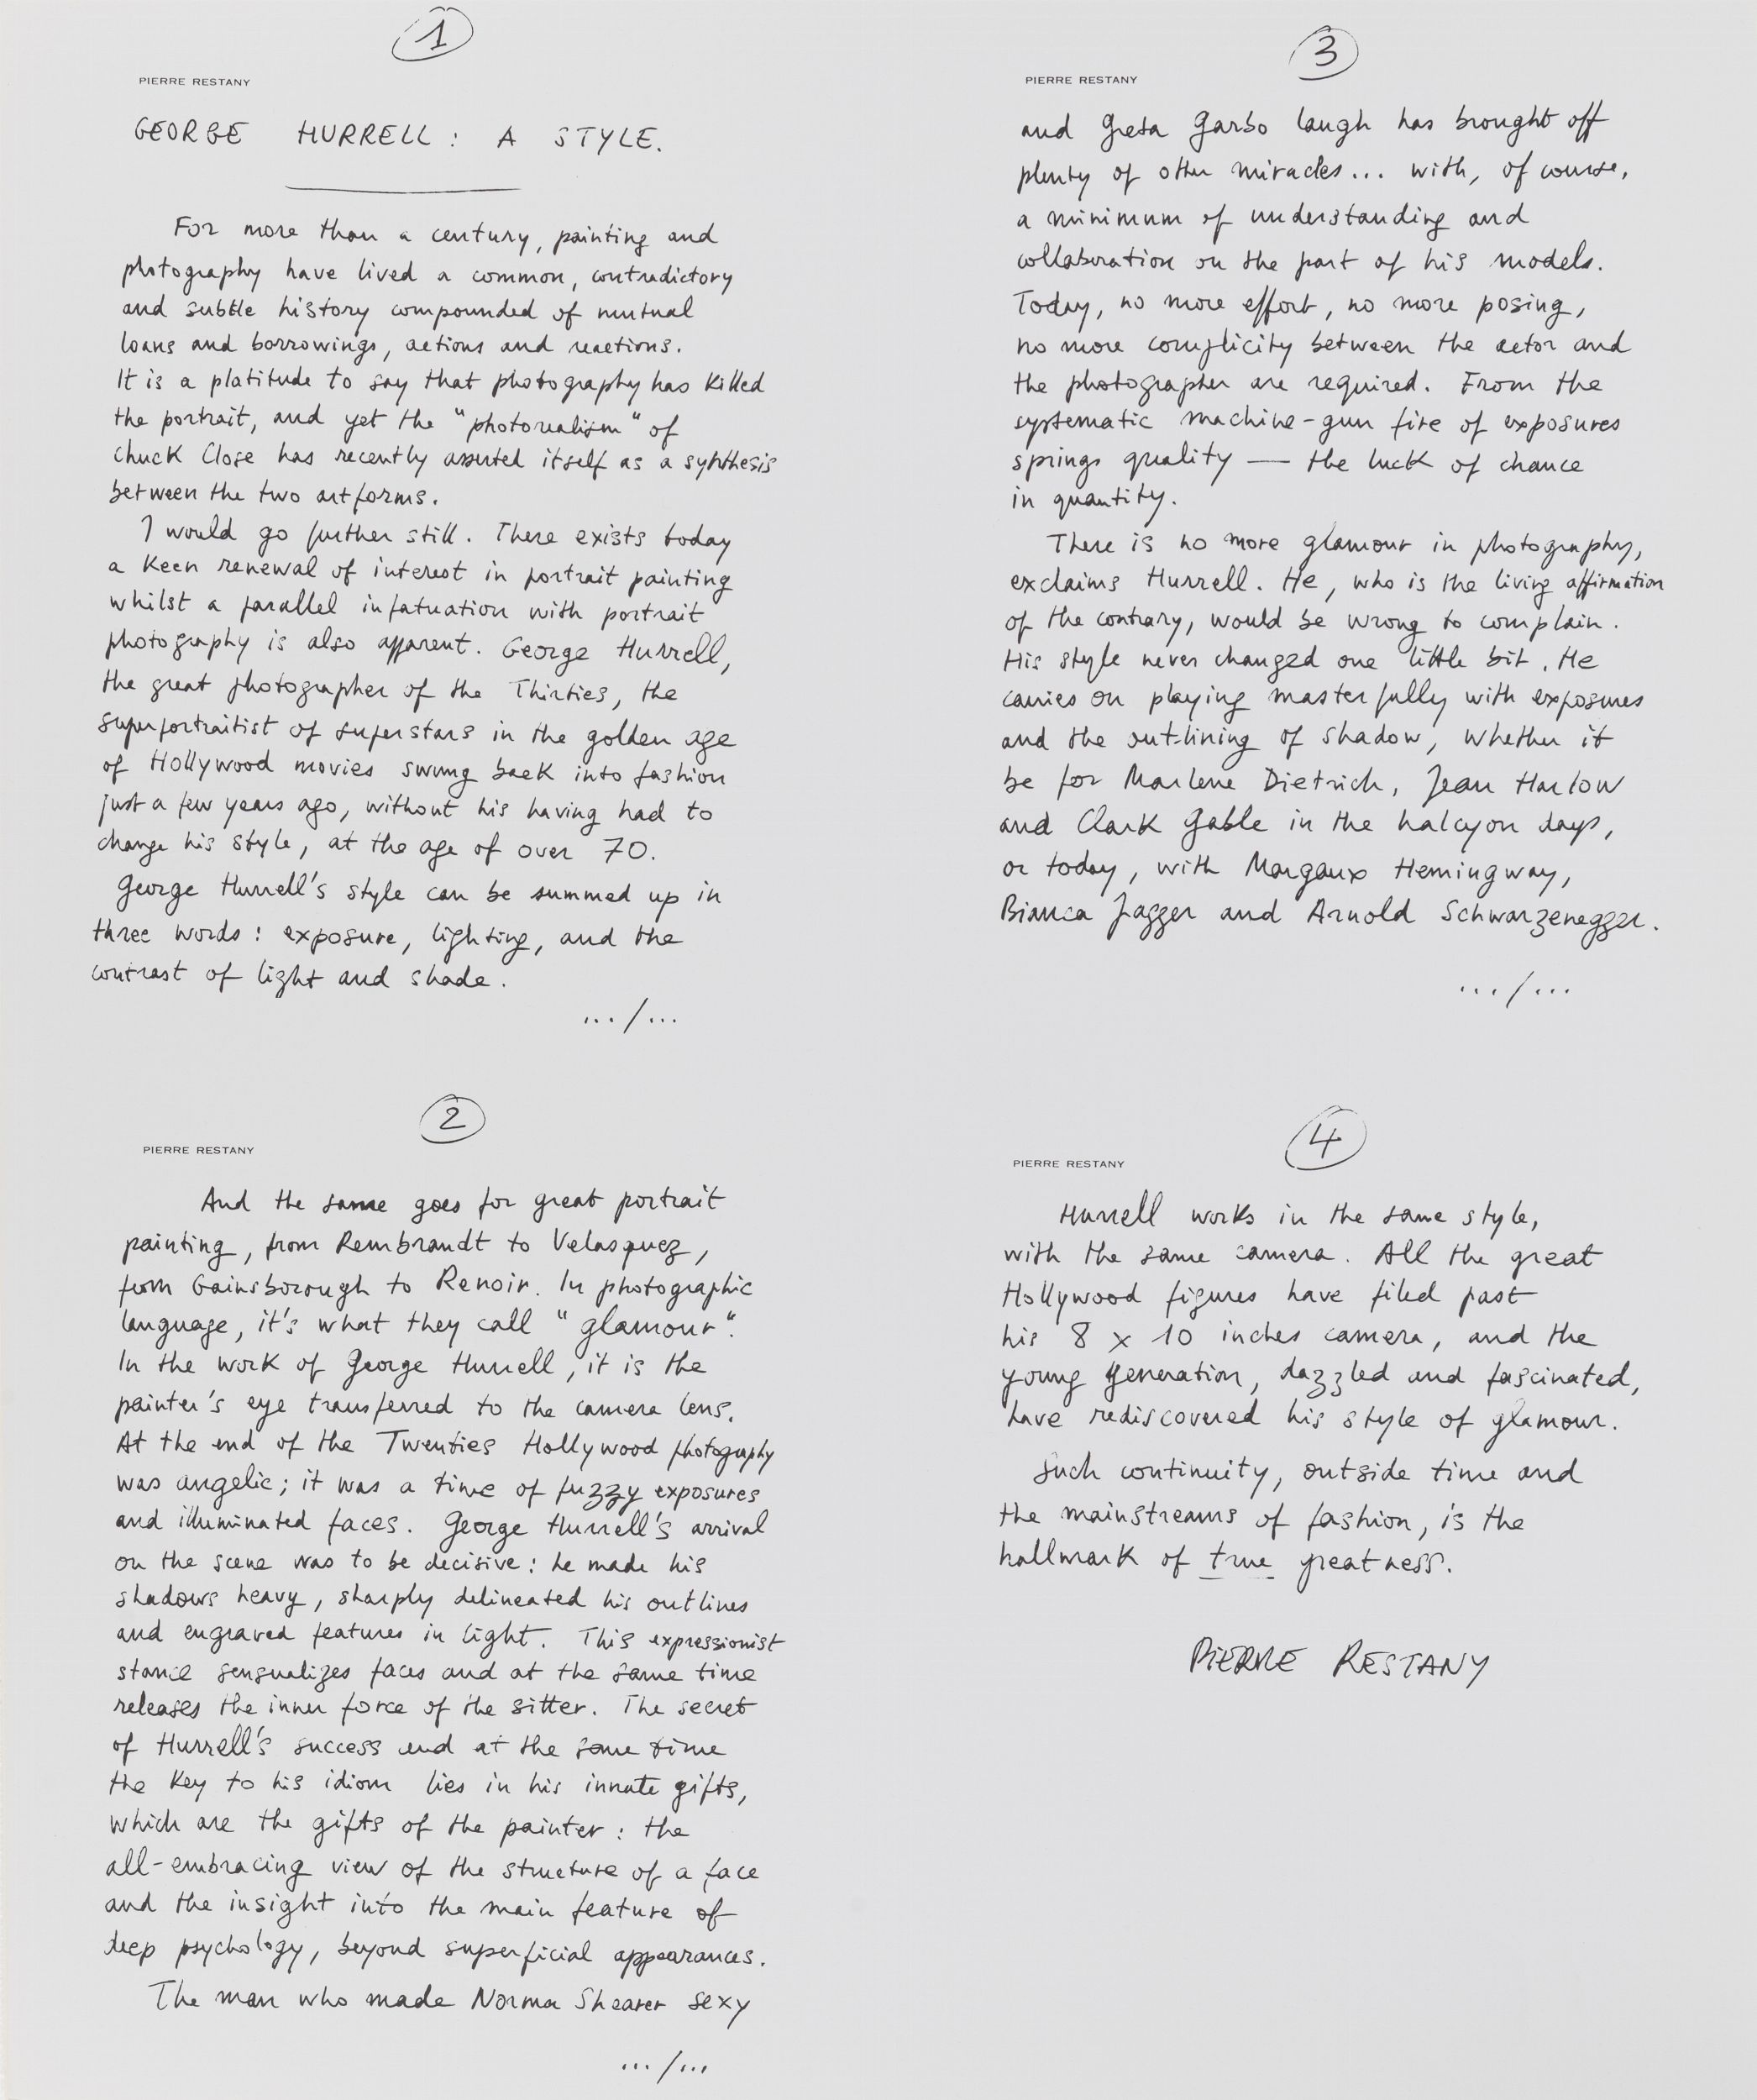 1
PIERRE RESTANY
GEORGE HURRELL : A STYLE.
For more than a century, painting and
photography have lived a common, contradictory
and subtle history compounded of mutual
loans and borrowings, actions and reactions.
It is a platitude to say that photography has killed
the portrait, and yet the "photorealism" of
Chuck Close has recently asserted itself as a synthesis
between the two artforms.
I would go further still. There exists today
a keen renewal of interest in portrait painting
whilst a parallel infatuation with portrait
photography is also apparent. George Hurrell,
the great photographer of the Thirties, the
superportraitist of superstars in the golden age
of Hollywood movies swung back into fashion
just a few years ago, without his having had to
change his style, at the age of over 70.
George Hurrell's style can be summed up in
three words : exposure, lighting, and the
contrast of light and shade.
.../...
2
PIERRE RESTANY
And the same goes for great portrait
painting, from Rembrandt to Velasquez,
from Gainsborough to Renoir. In photographic
language, it's what they call "glamour".
In the work of George Hurrell, it is the
painter's eye transferred to the camera lens.
At the end of the Twenties Hollywood photography
was angelic; it was a time of fuzzy exposures
and illuminated faces. George Hurrell's arrival
on the scene was to be decisive : he made his
shadows heavy, sharply delineated his outlines
and engraved features in light. This expressionist
stance sensualizes faces and at the same time
releases the inner force of the sitter. The secret
of Hurrell's success and at the same time
the key to his idiom lies in his innate gifts,
which are the gifts of the painter : the
all-embracing view of the structure of a face
and the insight into the main feature of
deep psychology, beyond superficial appearances.
The man who made Norma Shearer sexy
.../...
3
PIERRE RESTANY
and Greta Garbo laugh has brought off
plenty of other miracles... with, of course,
a minimum of understanding and
collaboration on the part of his models.
Today, no more effort, no more posing,
no more complicity between the actor and
the photographer are required. From the
systematic machine-gun fire of exposures
springs quality — the luck of chance
in quantity.
There is no more glamour in photography,
exclaims Hurrell. He, who is the living affirmation
of the contrary, would be wrong to complain.
His style never changed one little bit. He
carries on playing masterfully with exposures
and the out-lining of shadow, whether it
be for Marlene Dietrich, Jean Harlow
and Clark Gable in the halcyon days,
or today, with Margaux Hemingway,
Bianca Jagger and Arnold Schwarzenegger.
.../...
4
PIERRE RESTANY
Hurrell works in the same style,
with the same camera. All the great
Hollywood figures have filed past
his 8 x 10 inches camera, and the
young generation, dazzled and fascinated,
have rediscovered his style of glamour.
Such continuity, outside time and
the mainstreams of fashion, is the
hallmark of true greatness.
PIERRE RESTANY